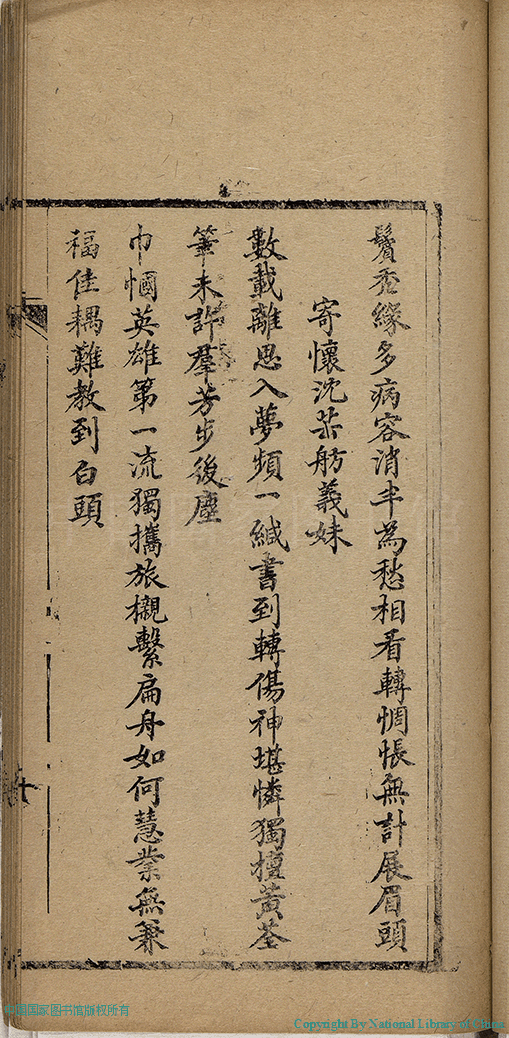 鬢禿緣多病容消半為愁相看轉惆悵無計展眉頭
寄懷沈芷舫義妹
數載離思入夢頻一緘書到轉傷神堪憐獨擅黃荃
筆未許羣芳步後塵
巾幗英雄第一流獨攜旅櫬繫扁舟如何慧業無兼
福佳耦難教到白頭
中國国家图书馆版权所有
Copyright By National Library of China